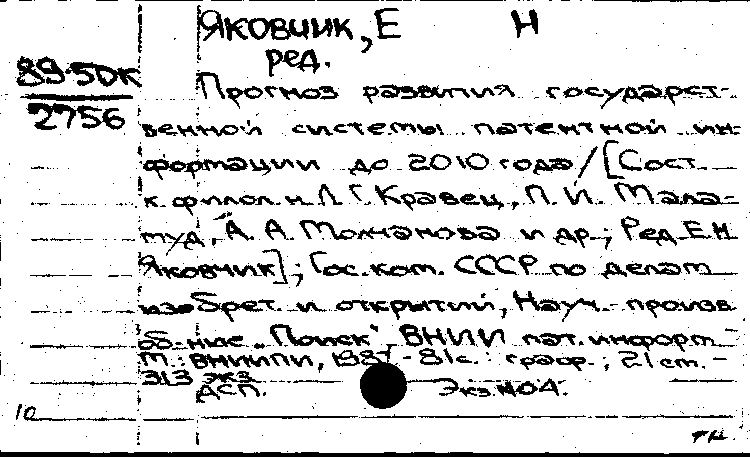 Яковчик, Е Н
ред.
89-5DK
2756
Прогноз развития государст-
венной системы патентной ин-
формации до 2010 года / [Сост.
к. филол. н. Л. Г. Кравец, П. И. Мала-
туд, А. А. Молчанова и др.; Ред. Е. Н.
Яковчик]; Гос. ком. СССР по делам
изобрет. и открытий, Науч.-произв.
об-ние „Поиск", ВНИИ пат. информ.-
М.: ВНИИПИ, 1987 - 81 с.: граф.; 21 см. -
313 экз.
ДСП. Экз. №04.
10